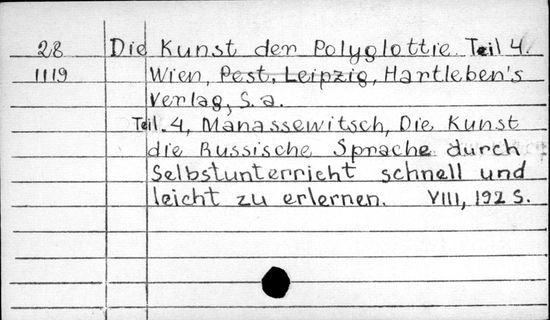 28 Die Kunst der Polyglottie. Teil 4.
1119 Wien, Pest, Leipzig, Hartleben's
Verlag, S. a.
Teil. 4, Manassewitsch, Die Kunst
die Russische Sprache durch
Selbstunterricht schnell und
leicht zu erlernen. VIII, 192 S.